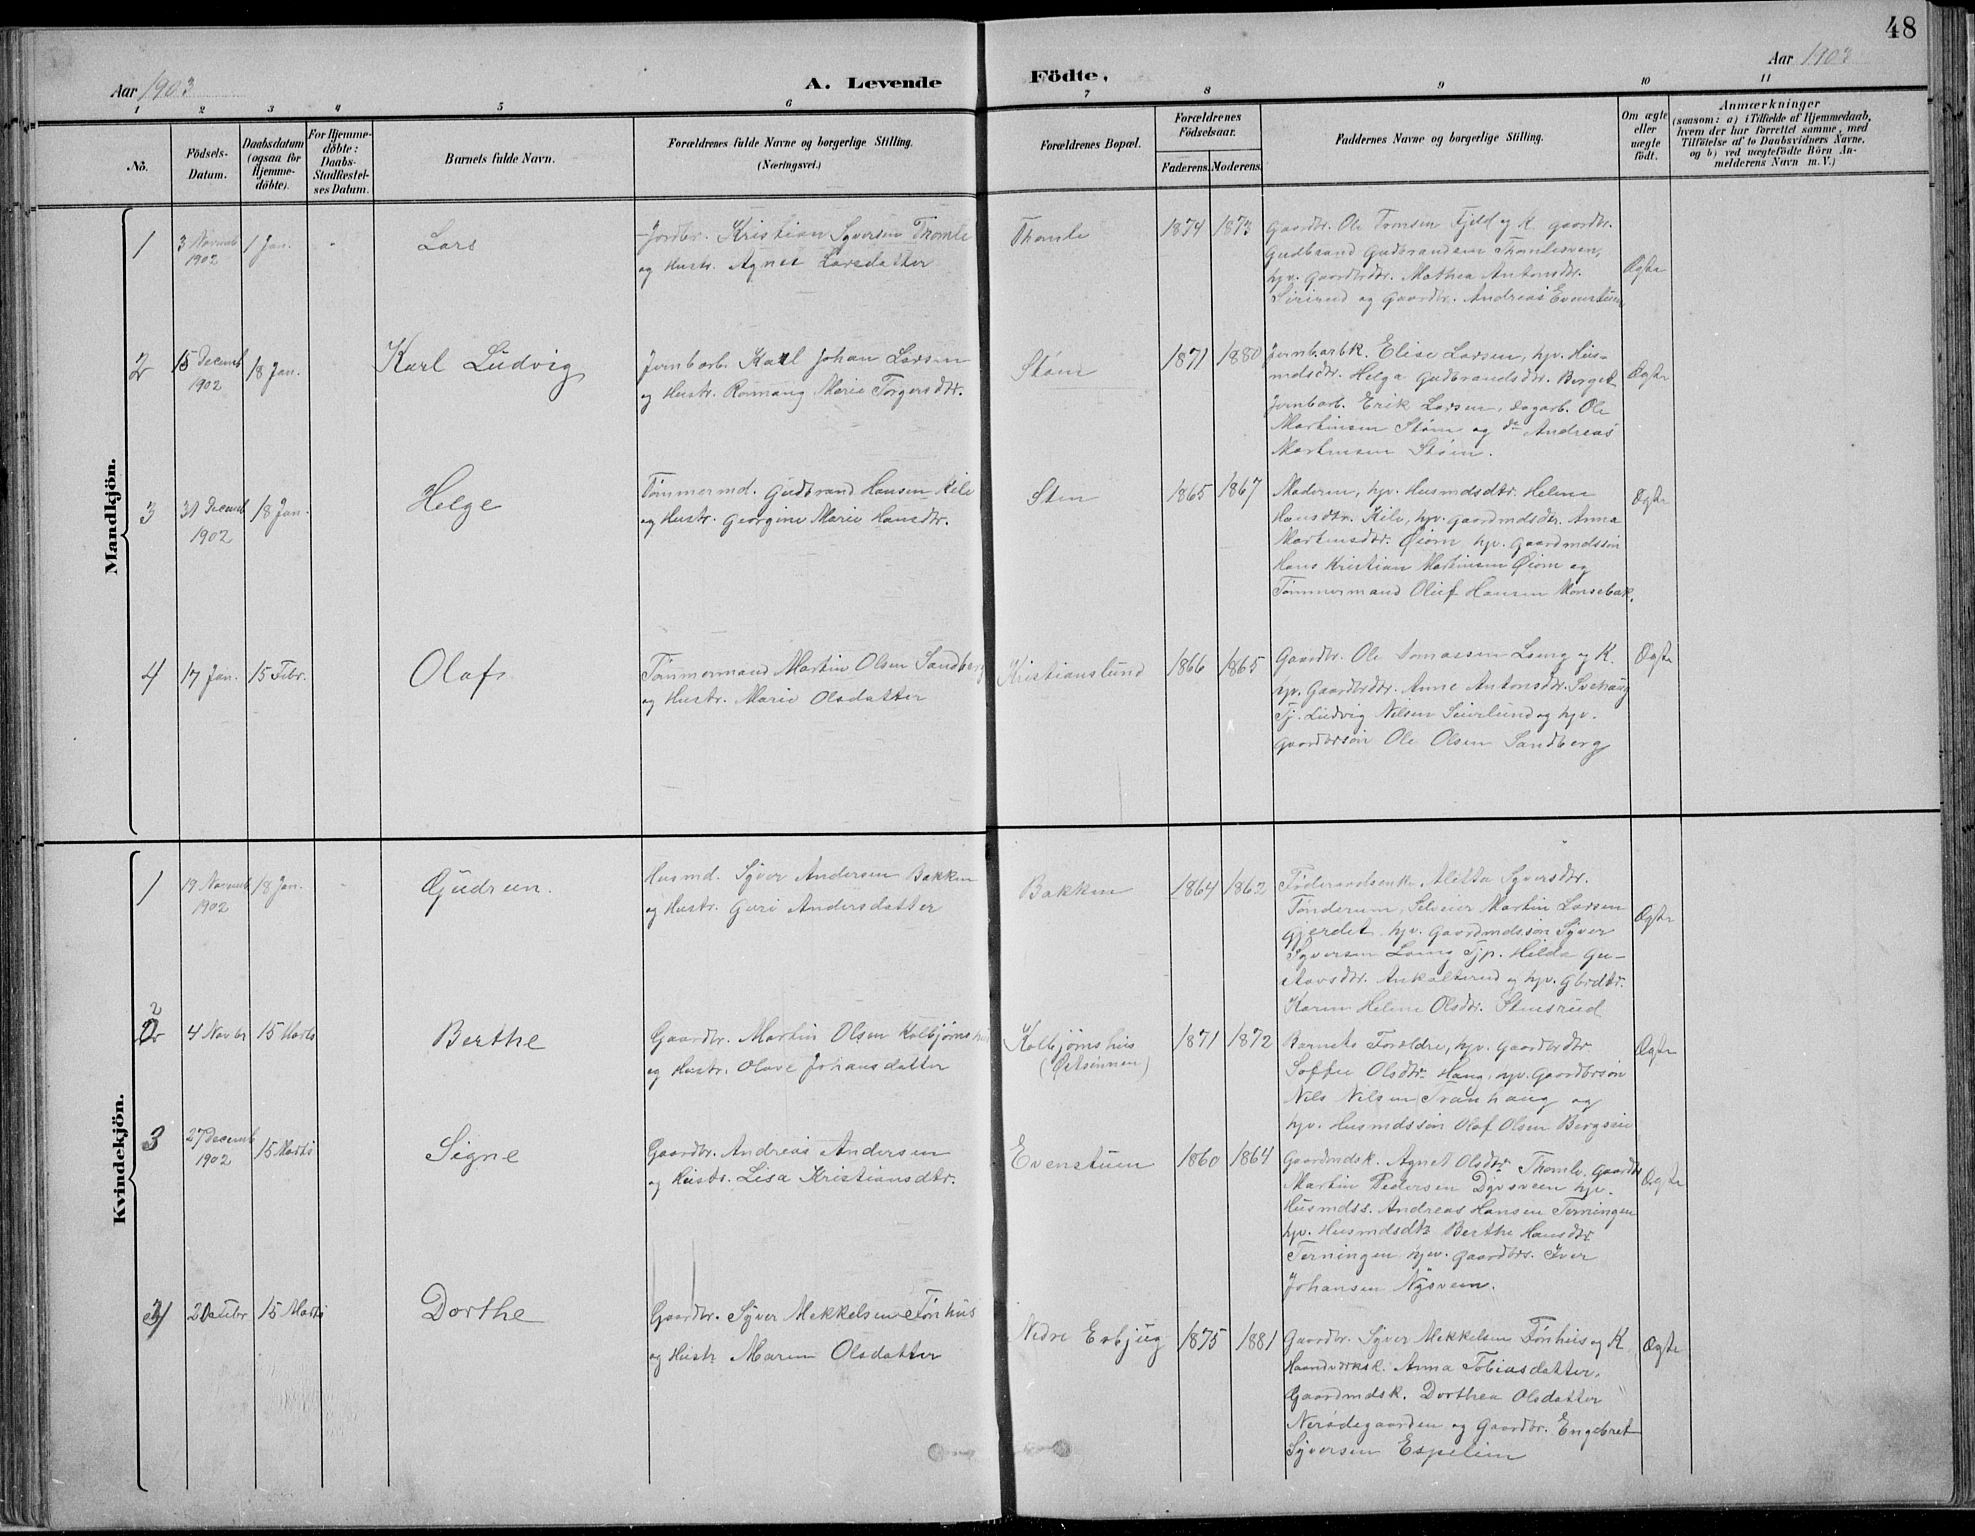 48
Aar 1903
A. Levende
Födte,
Aar 1903
1 2 3 4 5 6 7 8 9 10 11
No.
Födsels-Datum.
Daabsdatum (ogsaa for Hjemmedöbte).
For Hjemmedöbte: Daabs-Stadfestelses Datum.
Barnets fulde Navn.
Forældrenes fulde Navne og borgerlige Stilling. (Næringsvei.)
Forældrenes Bopæl.
Forældrenes Födselsaar.
Faderens. Moderens.
Faddernes Navne og borgerlige Stilling.
Om ægte eller uægte født.
Anmærkninger
(saasom: a) i Tilfælde af Hjemmedaab,
hvem der har forrettet samme, med
Tilföielse af to Daabsvidners Navne,
og b) ved uægtefödte Börn An-
melderens Navn m. V.)
Mandkjön.
1
3 Novemb 1902
1 Jan.
Lars
Jordbr. Kristian Syversen Thomle
og Hustr. Agnet Larsdatter
Thomle
1874 1873
Gaardbr. Ole Tronsen Fjeld og K. gaardbr.
Gudbrand Gudbrandsen Thomlesven,
hjv. gaardbrdtr. Mathea Antonsdtr.
og gaardbr. Andreas Evenstuen
Ægte
2
15 Decemb 1902
18 Jan.
Karl Ludvig
Jernbarb. Karl Johan Larsen
og Hustr. Marie Torgersdtr.
Støen
1871 1880
Jernbarbk. Elise Larsen, hjv. Hus-
mdsdtr. Helga Gudbrandsdtr. Berget
Jernbarb. Erik Larsen, dagarb. Ole
Martinsen Støen og do Andreas
Martinsen Støen.
Ægte
3
31 Decemb 1902
18 Jan.
Helge
Tømmermd. Gudbrand Hansen Kile
og Hustr. Georgine Marie Hansdtr.
Sten
1865 1867
Moderen, hjv. Husmdsdtr. Helene
Hansdtr. Kile, hjv. gaardmdsdtr. Anna
Martinsdtr. Øiom, hjv. Gaardmdssøn
Hans Kristian Martinsen Øiom og
Tømmermand Oluf Hansen Monsebak.
Ægte
4
17 Jan.
15 Febr.
Olaf
Tømmermand Martin Olsen Sandberg
og Hustr. Marie Olsdatter
Kristianslund
1866 1865
Gaardbr. Ole Tomassen Loeng og K.
hjv. Gaardbrdtr. Anne Antonsdtr. Svehaug
Tj. Ludvig Nilsen Seierlund og hjv.
gaardbrsøn Ole Olsen Sandberg
Ægte
Kvindekjön.
1
19 Novemb 1902
18 Jan.
Gudrun.
Husmd. Syver Andersen Bakken
og Hustr. Guri Andersdatter
Bakken
1864 1862
Føderaadsenke Aletta Syversdtr.
Tønderum, Selveier Martin Larsen
Gjerdet, hjv. Gaardmdssøn Syver
Syversen Loeng Tjp. Hilda Gu-
stavsdtr. Ankalterud og hjv. Gbrdtr.
Karen Helene Olsdtr. Stensrud
Ægte
2
4 Novbr
15 Marts
Berthe
Gaardbr. Martin Olsen Kolbjørnshus
og Hustr. Olave Johansdatter
Kolbjørnshus
1871 1872
Barnets Foreldre, hjv. gaardbrdtr.
Soffie Olsdtr. Haug, hjv. Gaardbrsøn
Nils Nilsen Tranhaug og
hjv. Husmdssøn Olaf Olsen Bergseie
Ægte
3
27 Decemb 1902
15 Marts
Signe
Gaardbr. Andreas Andersen
og Hustr. Lisa Kristiansdtr.
Evenstuen
1860 1864
Gaardmdsk. Agnet Olsdtr. Thomle, Gaardbr
Martin Pedersen Dyvsveen hjv.
Husmdss. Andreas Hansen Terningen
hjv. Husmdsdtr Berthe Hansdtr
Terningen hjv. gaardbrs. Iver
Johansen Nysveen.
Ægte
4
2 Febr
15 Marts
Dorthe
Gaardbr. Syver Mekkelsen Tønhus
og Hustr Maren Olsdatter
Nedre Erbjug
1875 1881
Gaardbr. Syver Mekkelsen Tønhus og K
Haandverksk. Anna Tobiasdatter,
Gaardmdsk. Dorthea Olsdatter
Nerødegaarden og Gaardbr. Engebret
Syversen Espelien
Ægte